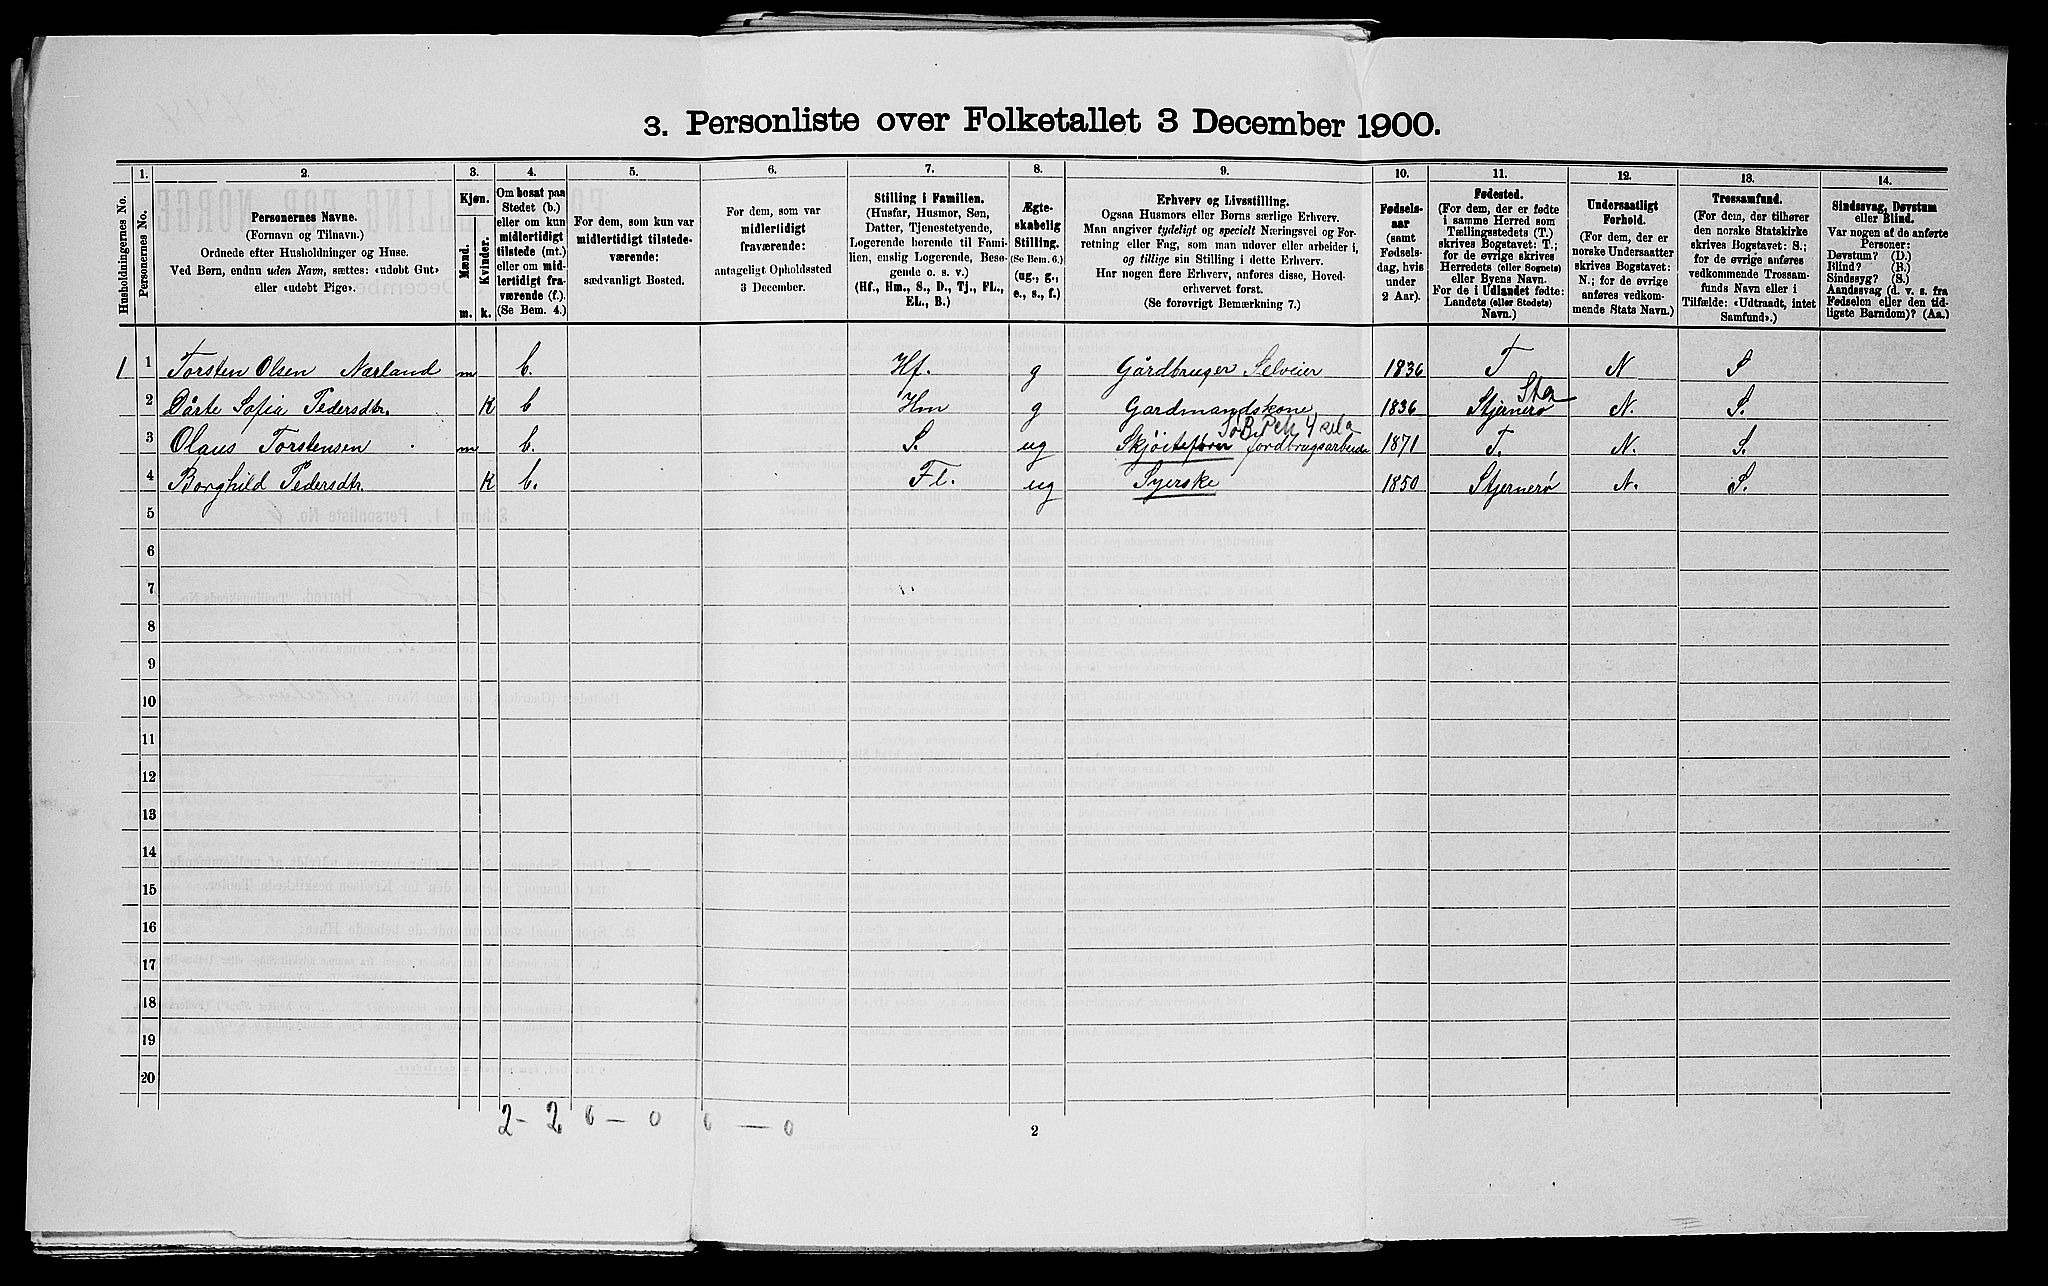 3. Personliste over Folketallet 3 December 1900.
1. 2. 3. 4. 5. 6. 7. 8. 9. 10. 11. 12. 13. 14.
Husholdningernes No.
Personernes No.
Personernes Navne.
(Fornavn og Tilnavn.)
Ordnede efter Husholdninger og Huse.
Ved Børn, endnu uden Navn, sættes: «udøbt Gut»
eller «udøbt Pige».
Kjøn.
Mænd. Kvinder.
m. k.
Om bosat paa
Stedet (b.)
eller om kun
midlertidigt
tilstede (mt.)
eller om mid-
lertidigt fra-
værende (f.)
(Se Bem. 4.)
For dem, som kun var
midlertidigt tilstede-
værende:
sædvanligt Bosted.
For dem, som var
midlertidigt
fraværende:
antageligt Opholdssted
3 December.
Stilling i Familien.
(Husfar, Husmor, Søn,
Datter, Tjenestetyende,
Logerende hørende til Fami-
lien, enslig Logerende, Besø-
gende o. s. v.)
(Hf., Hm., S., D., Tj., FL.,
EL., B.)
Ægte-
skabelig
Stilling.
(Se Bem. 6.)
(ug., g.,
e., s., f.)
Erhverv og Livsstilling.
Ogsaa Husmors eller Børns særlige Erhverv.
Man angiver tydeligt og specielt Næringsvei og For-
retning eller Fag, som man udøver eller arbeider i,
og tillige sin Stilling i dette Erhverv.
Har nogen flere Erhverv, anføres disse, Hoved-
erhvervet først.
(Se forøvrigt Bemærkning 7.)
Fødsels-
aar
(samt
Fødsels-
dag, hvis
under
2 Aar).
Fødested.
(For dem, der er fødte
i samme Herred som
Tællingsstedets (T.)
skrives Bogstavet: T.;
for de øvrige skrives
Herredets (eller Sognets)
eller Byens Navn.
For de i Udlandet fødte:
Landets (eller Stedets)
Navn.)
Undersaatligt
Forhold.
(For dem, der er
norske Undersaatter
skrives Bogstavet:
N.; for de øvrige
anføres vedkom-
mende Stats Navn.)
Trossamfund.
(For dem, der tilhører
den norske Statskirke
skrives Bogstavet: S.;
for de øvrige anføres
vedkommende Trossam-
funds Navn eller i
Tilfælde: «Udtraadt, intet
Samfund».)
Sindssvag, Døvstum
eller Blind.
Var nogen af de anførte
Personer:
Døvstum? (D.)
Blind? (B.)
Sindssyg? (S.)
Aandssvag (d. v. s. fra
Fødselen eller den tid-
ligste Barndom)? (Aa.)
1 1 Torsten Olsen Nærland m b. Hf. g Gårdbruger Selveier 1836 T N S
2 Dårte Sofia Pedersdtr. K b Hm g Gardmandskone 1836 Stjernerø N. S.
3 Olaus Torstensen m b. S. ug jordbrugsarbeide 1871 T. N. S.
4 Borghild Pedersdtr. K b. Fl. ug Syerske 1850 Stjernerø N. S.
5
6
7
8
9
10
11
12
13
14
15
16
17
18
19
20
2 - 2 0 - 0 0 - 0
2